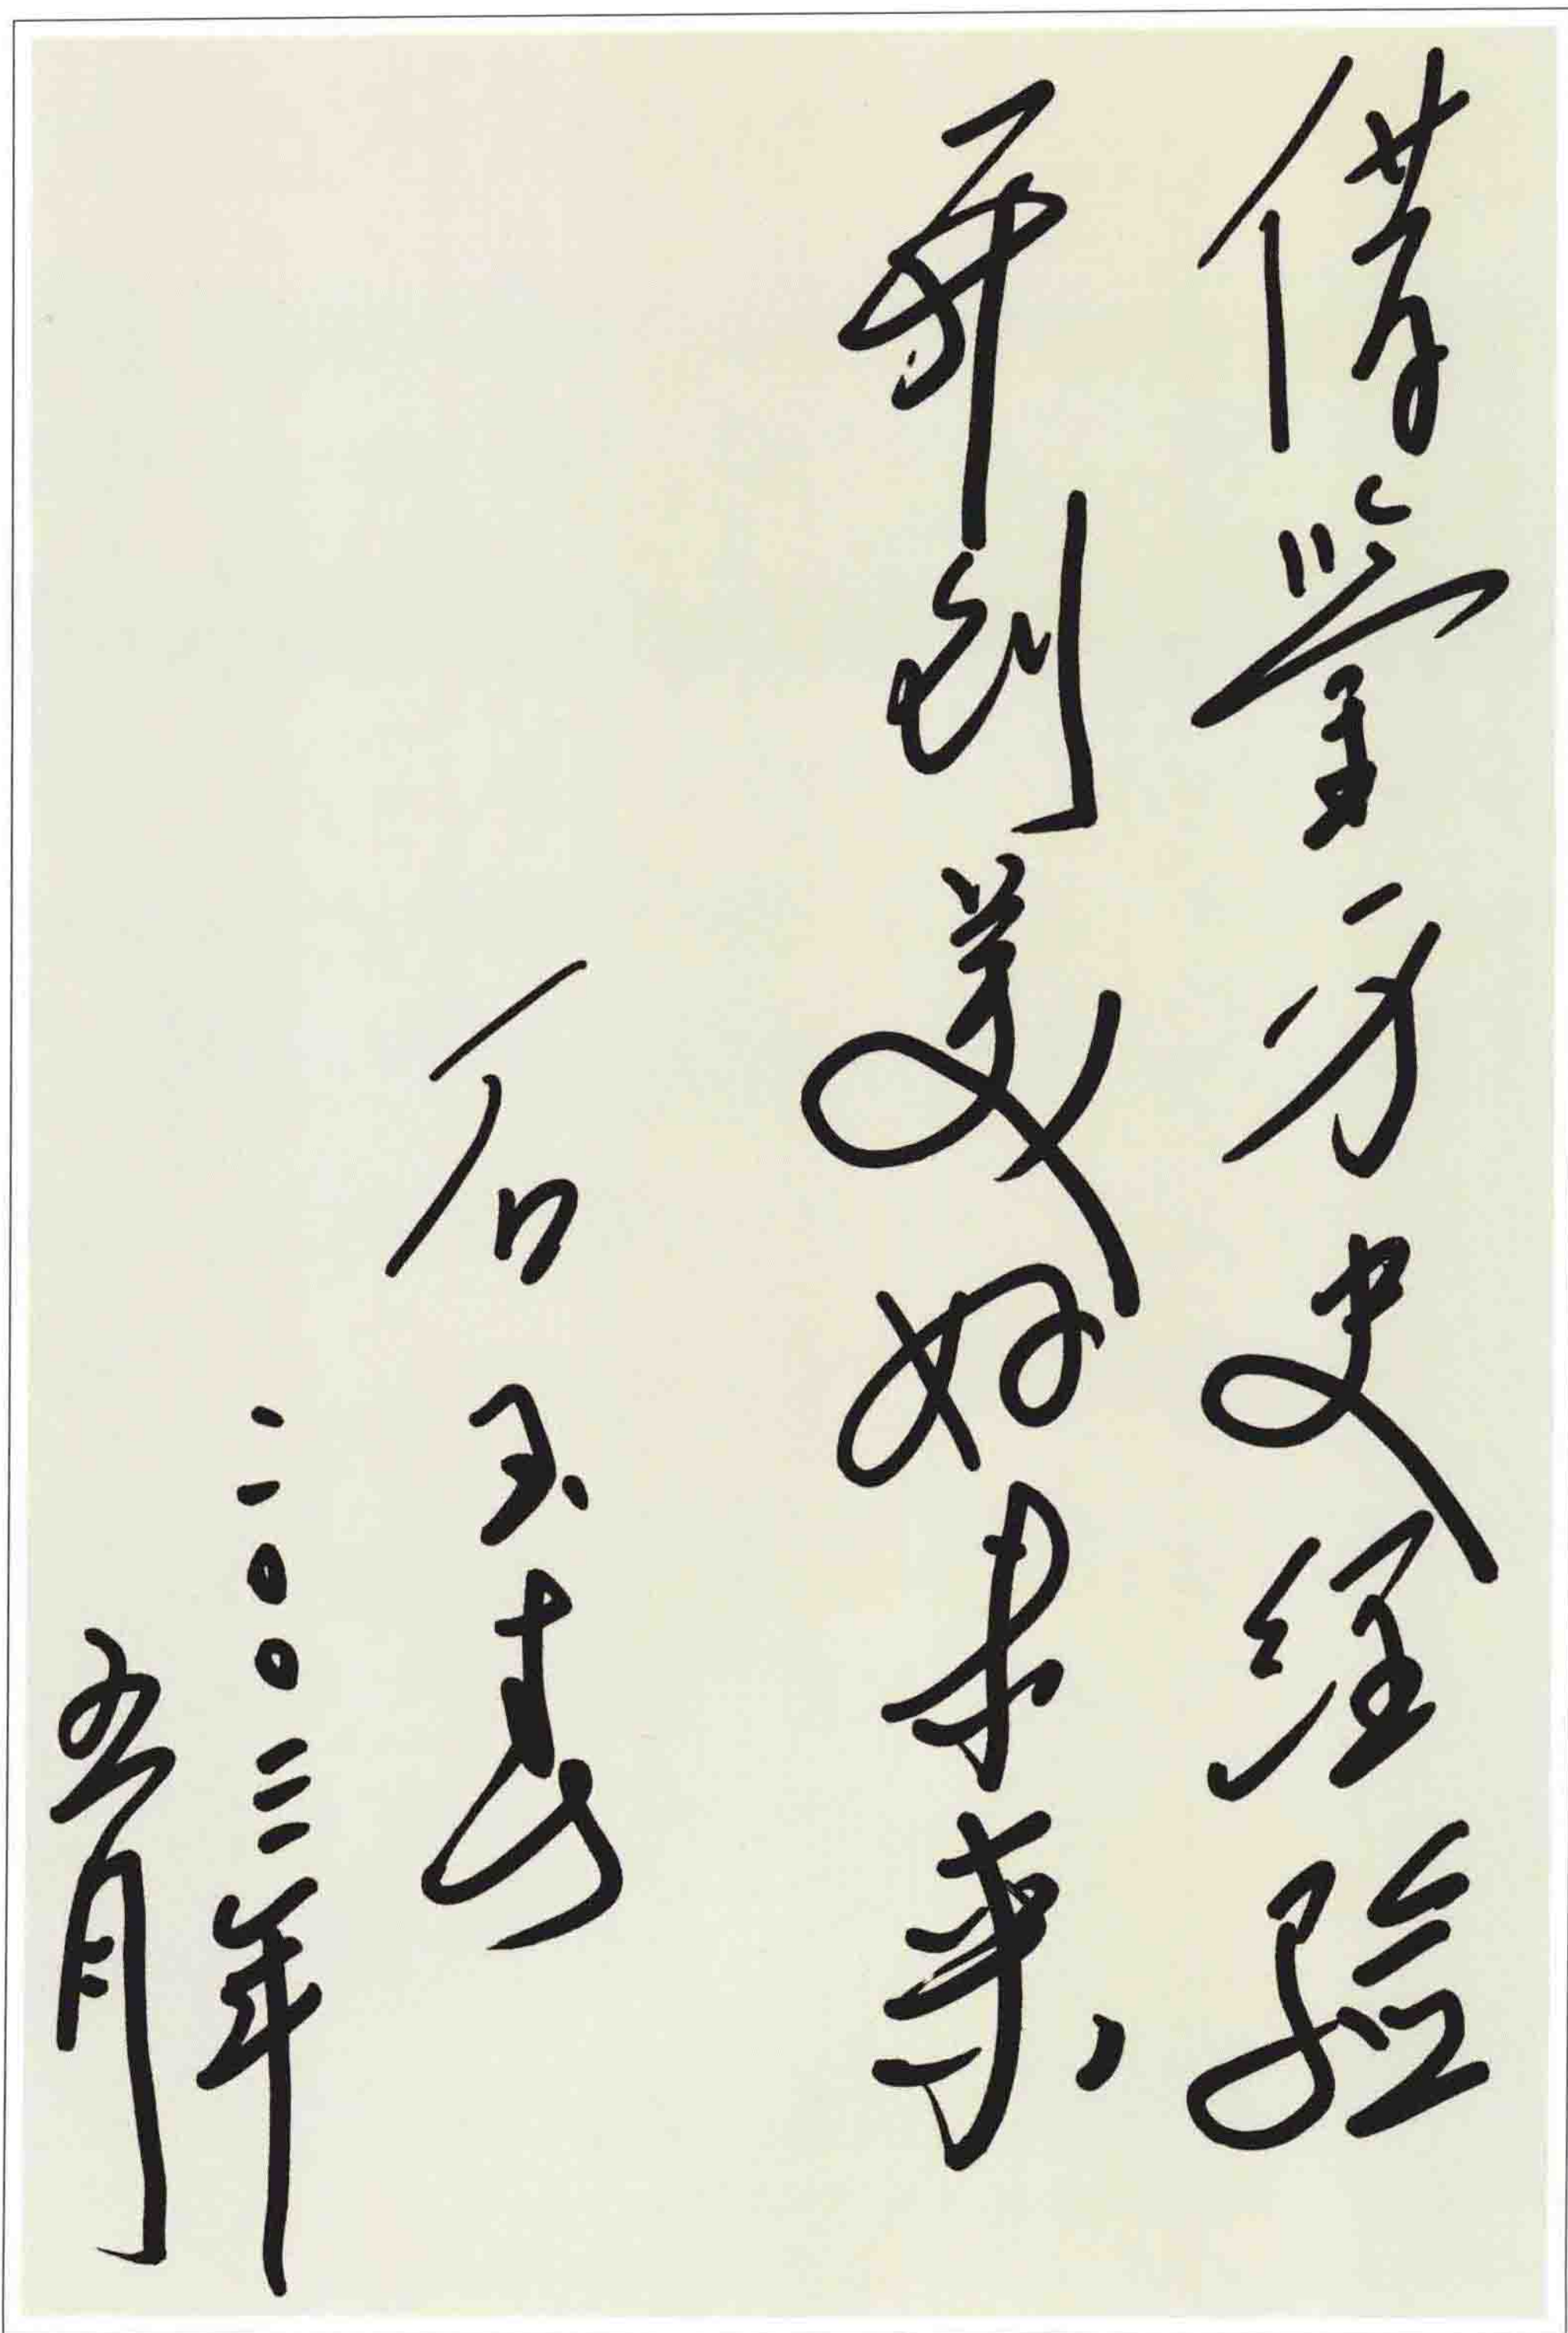 借鉴历史经验
开创美好未来、
石玉春
二〇〇三年
五月